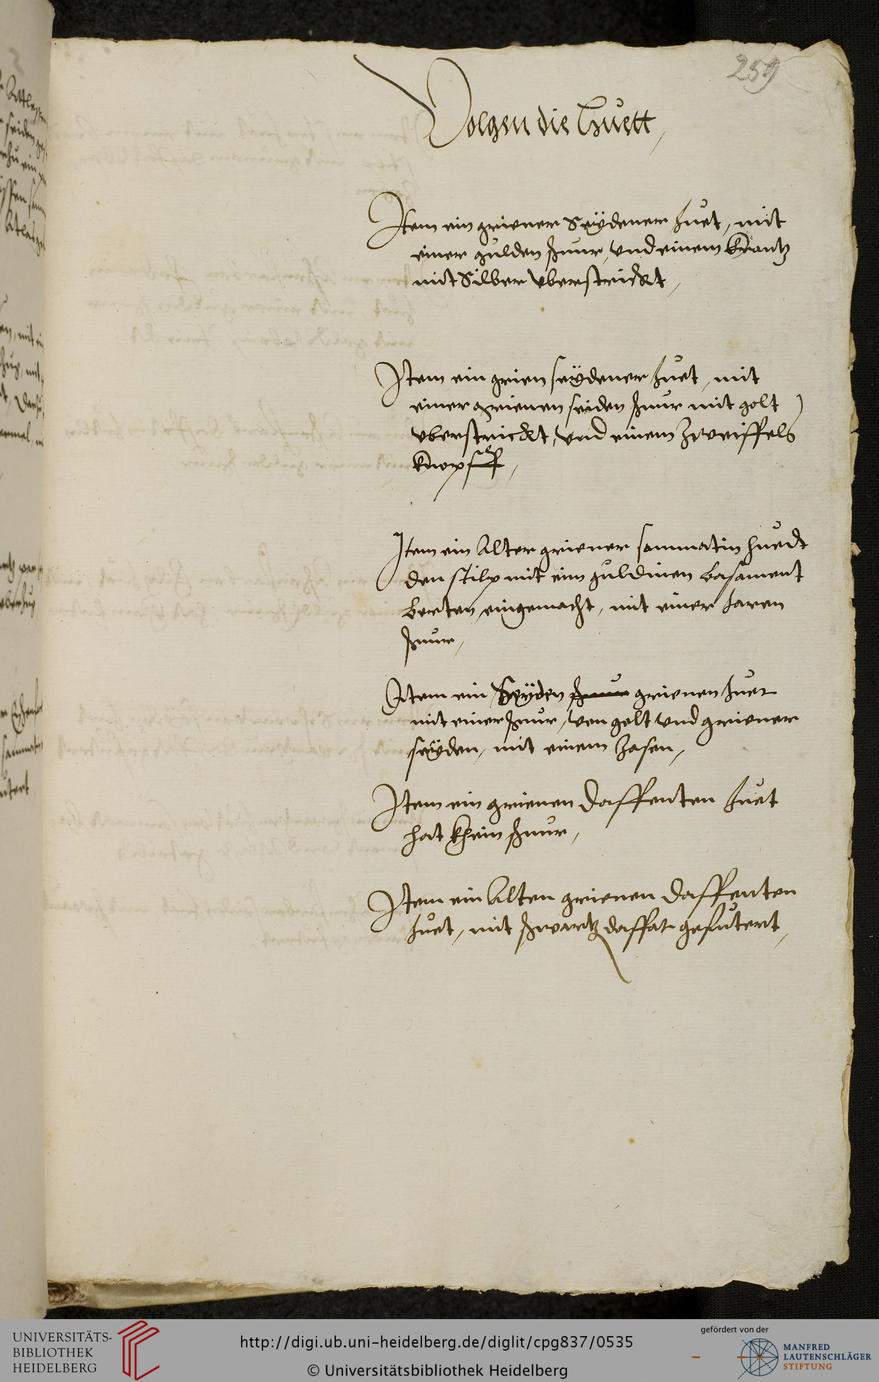 259
Volgen die Huett
Item ein griener Seÿdener huet, mit
einer gulden schnur, vnd einem Krantz
mit Silber vberstrickt,
Item ein grien seÿdener huet, mit
einer grienen seiden schnur mit golt
vberstrickt, vnd einem Zweiffels
Knopff,
Item ein Alter griener sammatin huedt
den stilp mit eim guldinen basament
borten eingemacht, mit einer haren
schnur,
Item ein Seÿden schnur grienen huet
mit einer schnur, von golt vnd griener
seÿden, mit einem Zasen,
Item ein grienen daffenten huet
hat khein schnur,
Item ein Alten grienen daffenten
huet, mit schwartz daffat gefutert,
UNIVERSITÄTS-
BIBLIOTHEK
HEIDELBERG
http://digi.ub.uni-heidelberg.de/diglit/cpg837/0535
© Universitätsbibliothek Heidelberg
gefördert von der
MANFRED
LAUTENSCHLÄGER
STIFTUNG